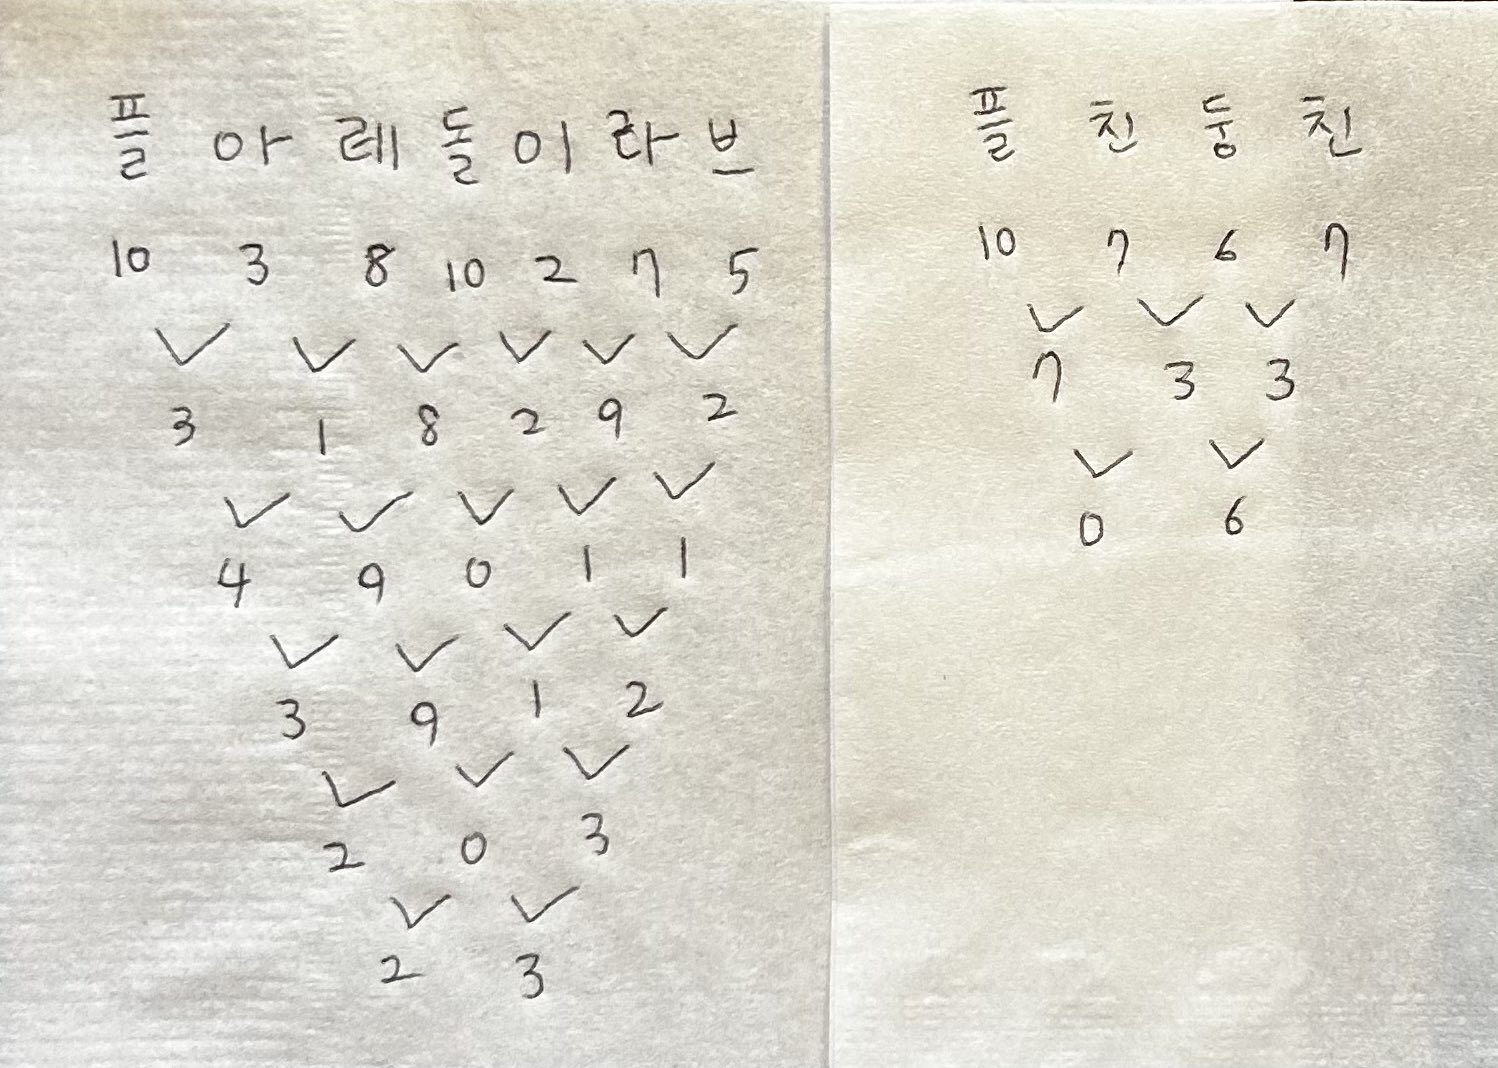 플 아 레 돌 이 라 브
10 3 8 10 2 7 5
3 1 8 2 9 2
4 9 0 1 1
3 9 1 2
2 0 3
2 3
플 친 둥 친
10 7 6 7
7 3 3
0 6